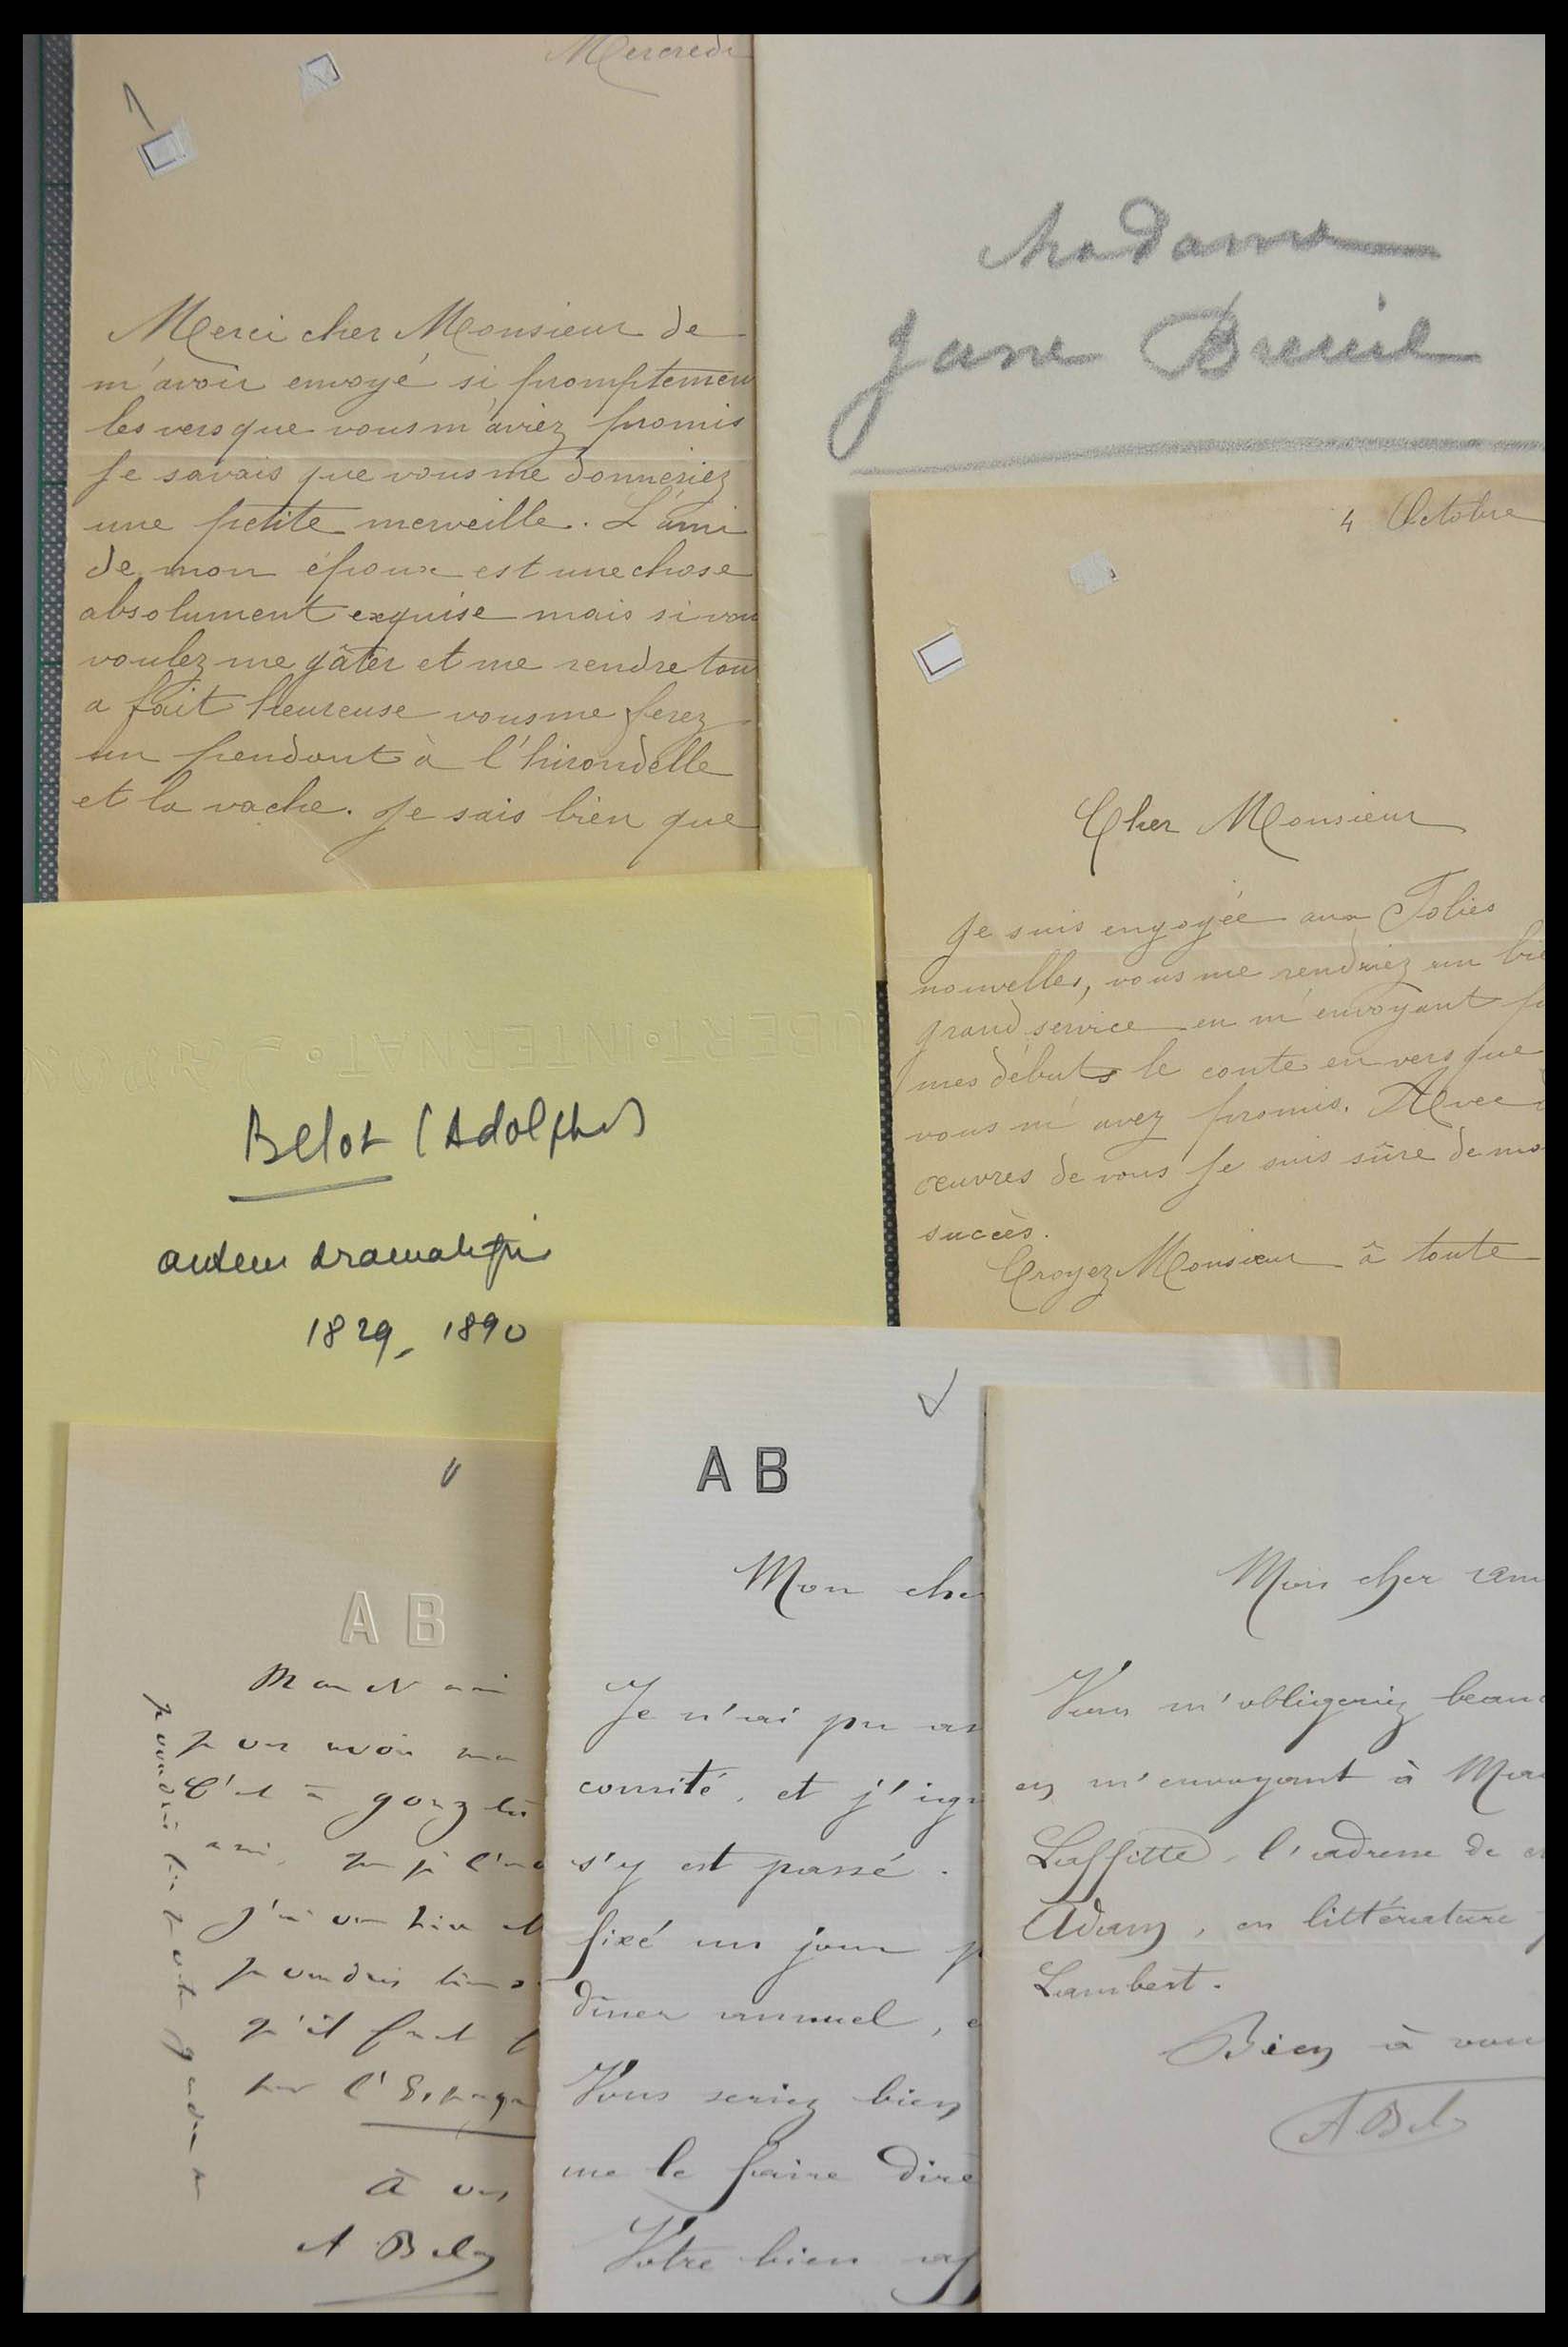 Mercredi
Merci cher Monsieur de
m'avoir envoyé si promptemen
les vers que vous m'aviez promis
Je savais que vous me donneriez
une petite merveille. L'ami
de mon époux est une chose
absolument exquise mais si vou
voulez me gâter et me rendre tou
a fait heureuse vous me ferez
un pendant à l'hirondelle
et la vache. Je sais bien que
Madame
Jane Breuil
4 Octobre
Cher Monsieur
Je suis engagée aux Folies
nouvelles, vous me rendriez un bie
grand service en m'envoyant
mes débuts le conte en vers que
vous m'avez promis. Avec
œuvres de vous je suis sûre de mo
succès.
Croyez Monsieur à toute
INTERNAT
Belot (Adolphe)
auteur dramatique
1829-1890
AB
Mon
C'est à
j'ai
voudrais
qu'il faut
sur l'Espagn
à vous
A Belot
AB
Mon che
Je n'ai pu as
comité, et j'ign
s'y est passé.
fixé un jour p
dîner annuel,
Vous seriez bien
me le faire dire
Votre bien aff
Mon cher ami
Vous m'obligeriez beau
en m'envoyant à
Laffitte, l'adresse de
Adam, en littérature
Lambert.
Bien à vous
A Belot